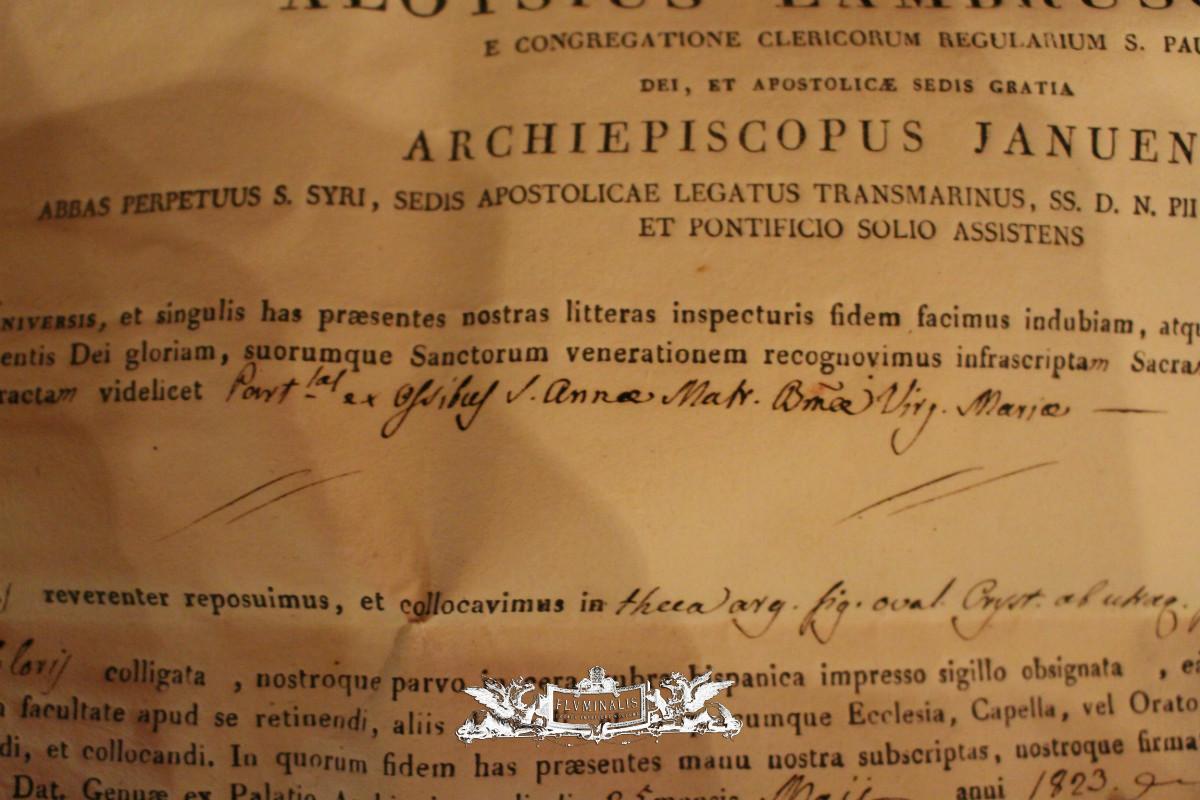 ALOYSIUS LAMBRUSC
E CONGREGATIONE CLERICORUM REGULARIUM S. PAU
DEI, ET APOSTOLICÆ SEDIS GRATIA
ARCHIEPISCOPUS JANUEN
ABBAS PERPETUUS S. SYRI, SEDIS APOSTOLICAE LEGATUS TRANSMARINUS, SS. D. N. PII
ET PONTIFICIO SOLIO ASSISTENS
NIVERSIS, et singulis has præsentes nostras litteras inspecturis fidem facimus indubiam, atq
entis Dei gloriam, suorumque Sanctorum venerationem recognovimus infrascriptam Sacra
ractam videlicet Part.las ex Ossibus S. Annæ Matr. Bmæ Virg. Mariæ
reverenter reposuimus, et collocavimus in theca arg. fig. oval. Cryst. ab utraq.
loris colligata, nostroque parvo in cera rubra hispanica impresso sigillo obsignata, ea
facultate apud se retinendi, aliis cumque Ecclesia, Capella, vel Orato
FLVMINALIS
di, et collocandi. In quorum fidem has præsentes manu nostra subscriptas, nostroque firma
Dat. Genuæ ex Palatio mensis Maii anni 1823.